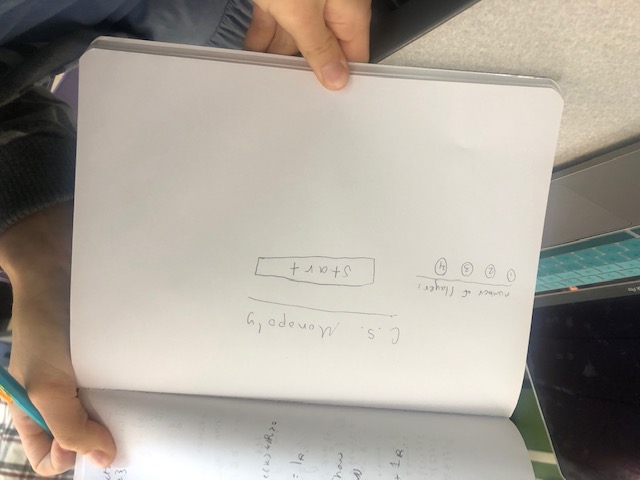 C.S. Monopoly
number of Players
1 2 3 4
start